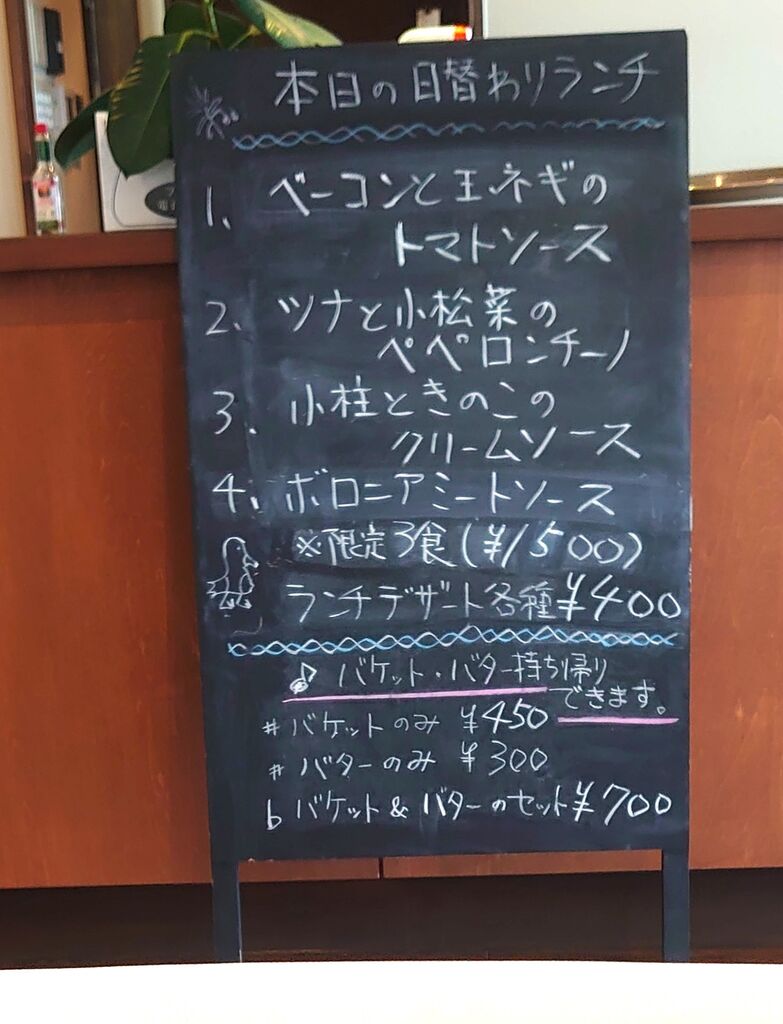 本日の日替わりランチ
1、ベーコンと玉ネギの
トマトソース
2、ツナと小松菜の
ペペロンチーノ
3、小柱ときのこの
クリームソース
4、ボロニアミートソース
※限定3食(¥1500)
ランチデザート各種¥400
♪バケット・バター持ち帰り
できます。
#バケットのみ ¥450
#バターのみ ¥300
♭バケット&バターのセット¥700